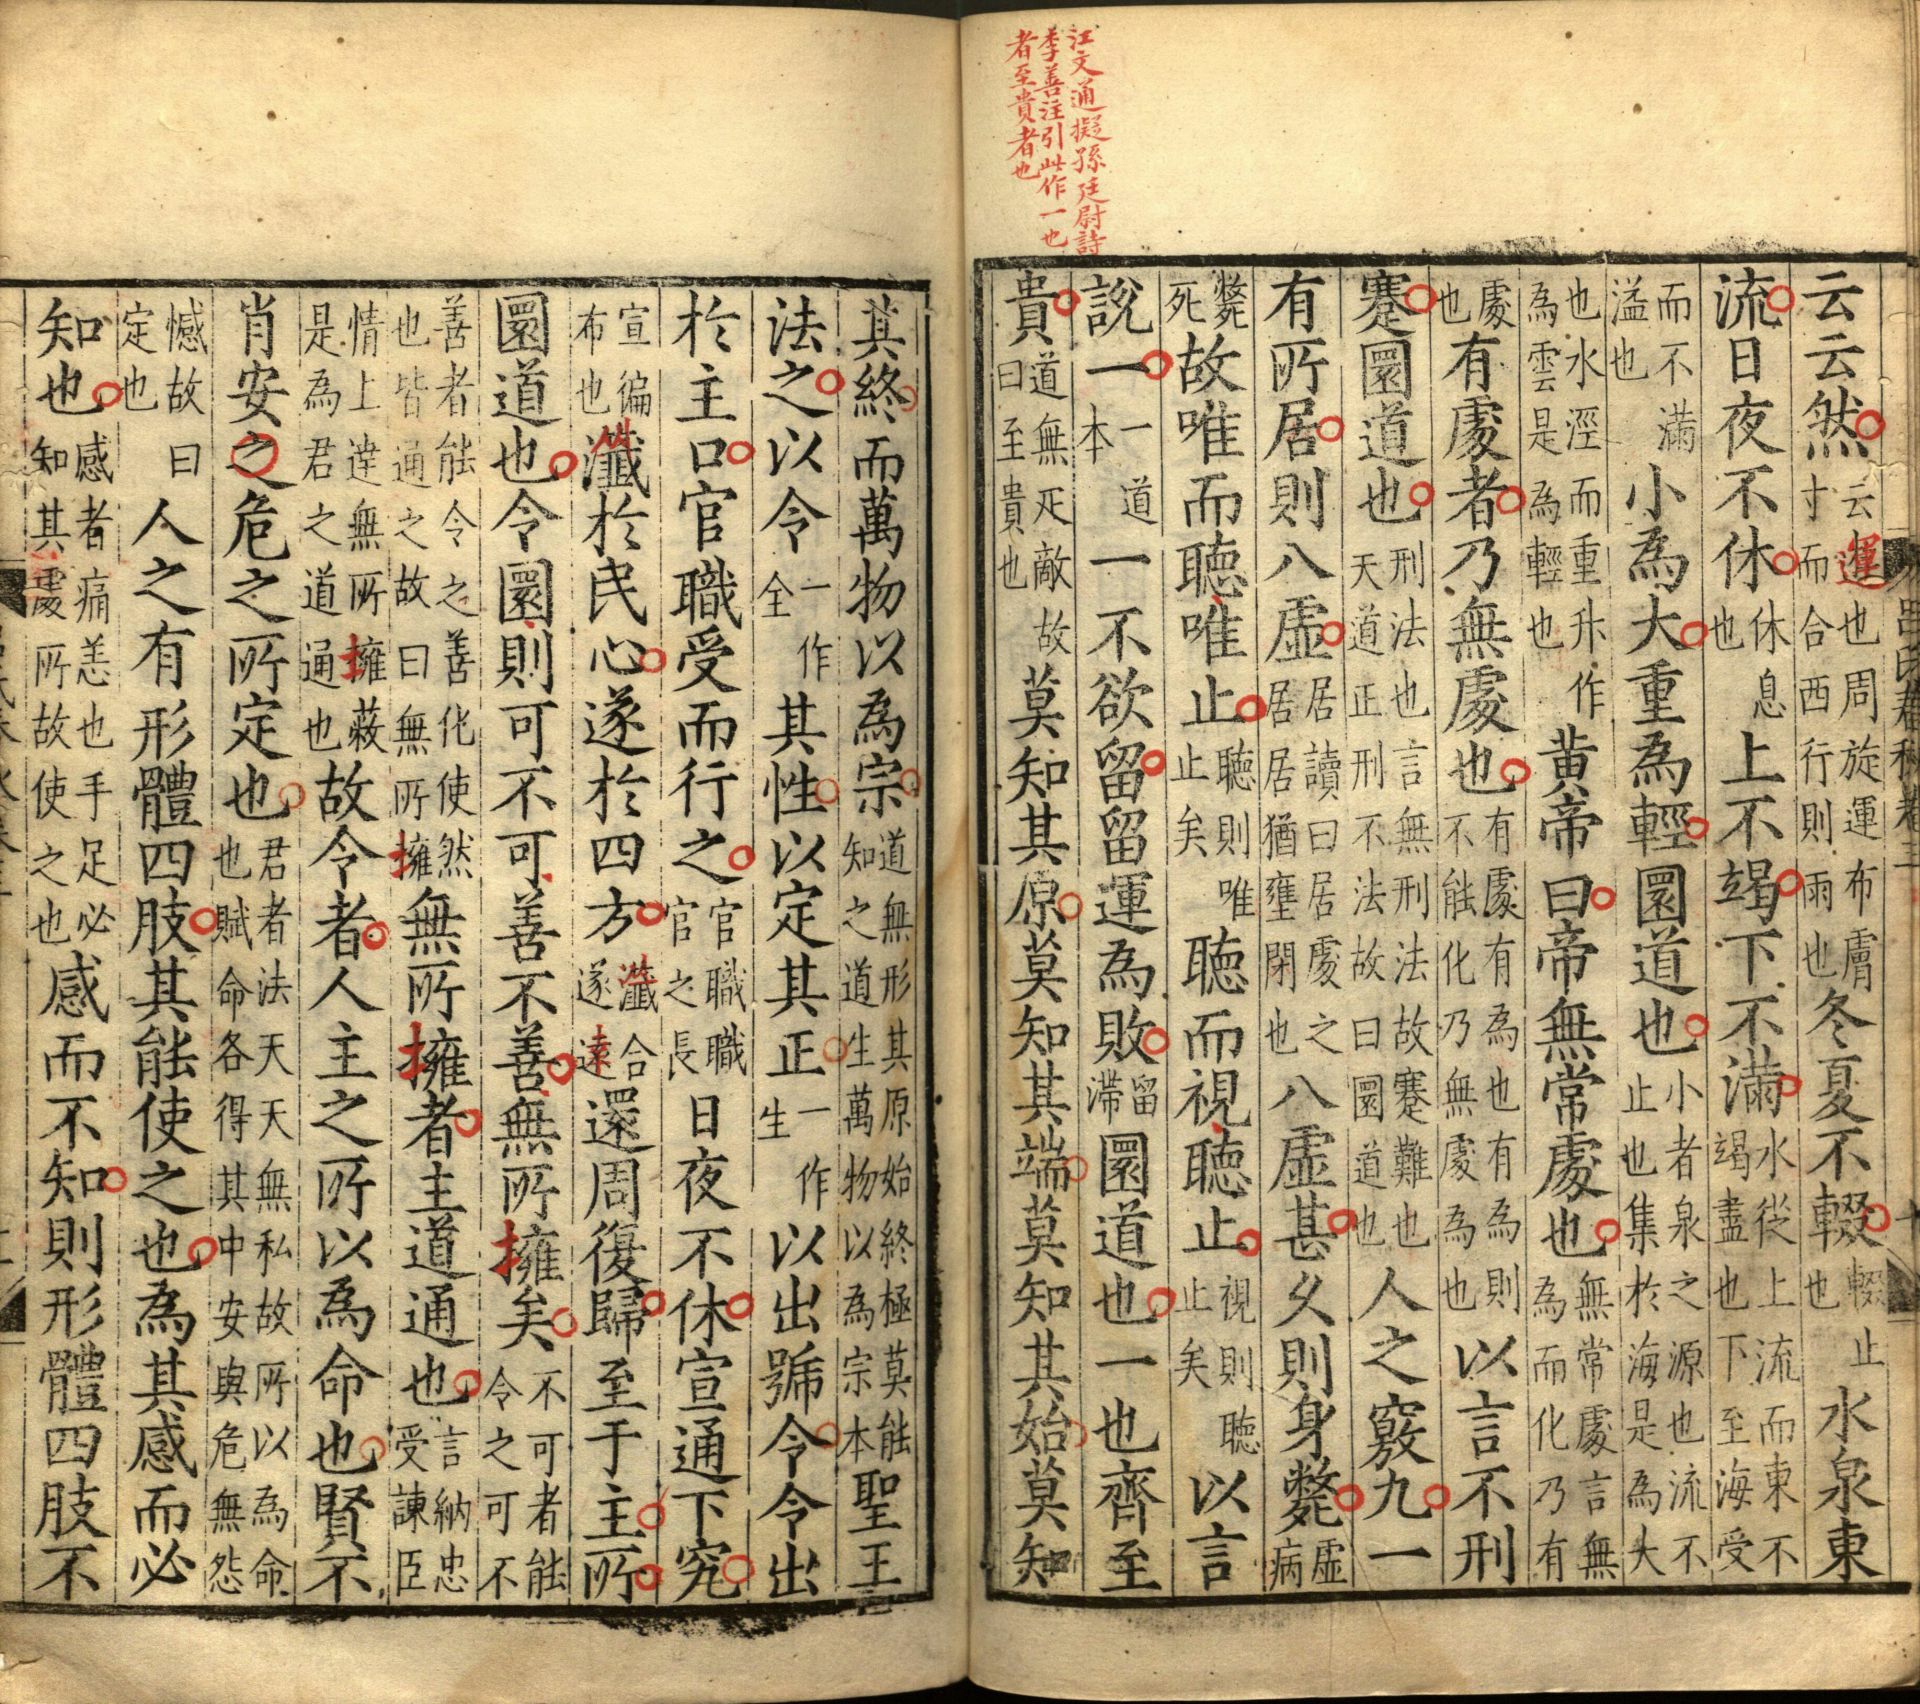 江文通擬孫廷尉詩
李善注引此作一也
者至貴者也
云云然云運也周旋運布膚寸而合西行則雨也冬夏不輟輟止也水泉東
流日夜不休休息也上不竭下不滿水從上流而東不竭盡也下至海受
而不滿溢也小為大重為輕圜道也小者泉之源也流不止也集於海是為大
也水溼而重升作為雲是為輕也黄帝曰帝無常處也無常處言無為而化乃有
處也有處者乃無處也有處有為也有為則不能化乃無處為也以言不刑
蹇圜道也刑法也言無刑法故蹇難也天道正刑不法故曰圜道也人之竅九一
有所居則八虛居讀曰居處之居居猶壅閉也八虛甚久則身斃虛病
斃死故唯而聽唯止聽則唯止矣聽而視聽止視則聽止矣以言
說一一道本一不欲留留運為敗留滯圜道也一也齊至
貴道無疋敵故曰至貴也莫知其原莫知其端莫知其始莫知
其終而萬物以為宗道無形其原始終極莫能知之道生萬物以為宗本聖王
法之以令一作全其性以定其正一作生以出號令令出
於主口官職受而行之官職職官之長日夜不休宣通下究
宣徧布也瀸於民心遂於四方瀸合遂遠還周復歸至于主所
圜道也令圜則可不可善不善無所擁矣不可者能令之可不
善者能令之善化使然也皆通之故曰無所擁無所擁者主道通也言納忠受諫臣
情上達無所擁蔽是為君之道通也故令者人主之所以為命也賢不
肖安之危之所定也君者法天天無私故所以為命也賦命各得其中安與危無怨
憾故曰定也人之有形體四肢其能使之也為其感而必
知也感者痛恙也手足必知其處所故使之也感而不知則形體四肢不